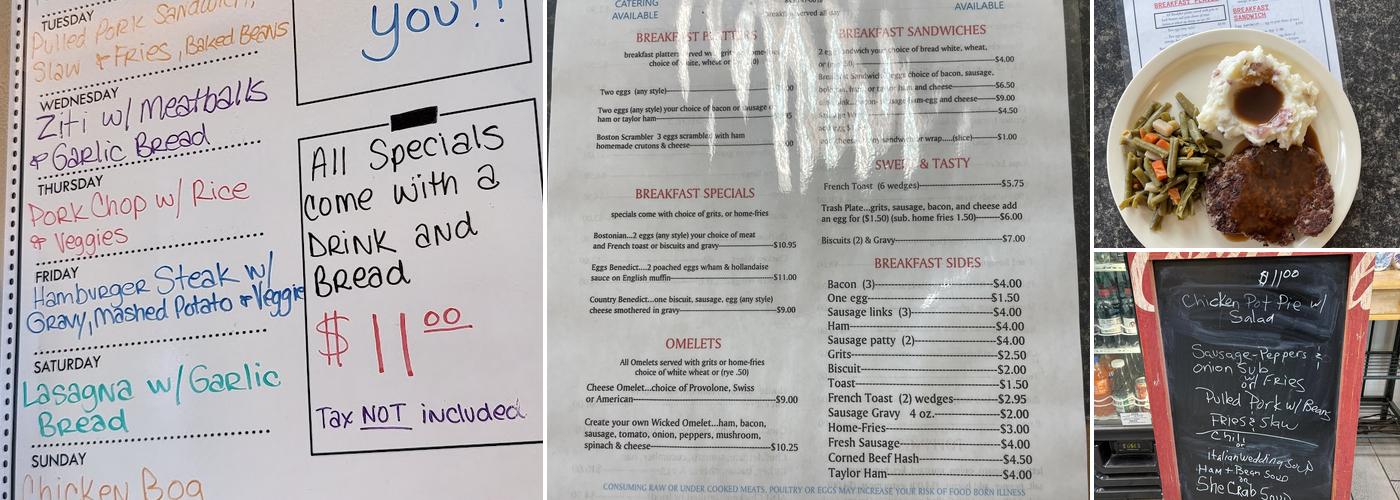 TUESDAY
Pulled Pork Sandwich,
Slaw & Fries, Baked Beans
WEDNESDAY
Ziti w/ Meatballs
& Garlic Bread
THURSDAY
Pork Chop w/ Rice
& Veggies
FRIDAY
Hamburger Steak w/
Gravy, Mashed Potato & Veggie
SATURDAY
Lasagna w/ Garlic
Bread
SUNDAY
Chicken Bog
you!!
All Specials
come with a
DRINK and
Bread
$11.00
Tax NOT included
CATERING
AVAILABLE
Breakfast served all day
AVAILABLE
BREAKFAST PLATTERS
breakfast platters served with grits or home-fries
choice of white, wheat or
Two eggs (any style)
Two eggs (any style) your choice of bacon or sausage
ham or taylor ham
Boston Scrambler 3 eggs scrambled with ham
homemade crutons & cheese
BREAKFAST SPECIALS
specials come with choice of grits, or home-fries
Bostonian...2 eggs (any style) your choice of meat
and French toast or biscuits and gravy $10.95
Eggs Benedict....2 poached eggs wham & hollandaise
sauce on English muffin $11.00
Country Benedict...one biscuit, sausage, egg (any style)
cheese smothered in gravy $9.00
OMELETS
All Omelets served with grits or home-fries
choice of white wheat or (rye .50)
Cheese Omelet...choice of Provolone, Swiss
or American $9.00
Create your own Wicked Omelet...ham, bacon,
sausage, tomato, onion, peppers, mushroom,
spinach & cheese $10.25
BREAKFAST SANDWICHES
2 egg sandwich your choice of bread white, wheat,
$4.00
Breakfast Sandwich eggs choice of bacon, sausage,
ham, or taylor ham and cheese $6.50
ham-egg and cheese $9.00
$4.50
sandwich or wrap.....(slice) $1.00
SWEET & TASTY
French Toast (6 wedges) $5.75
Trash Plate...grits, sausage, bacon, and cheese add
an egg for ($1.50) (sub. home fries 1.50) $6.00
Biscuits (2) & Gravy $7.00
BREAKFAST SIDES
Bacon (3) $4.00
One egg $1.50
Sausage links (3) $4.00
Ham $4.00
Sausage patty (2) $4.00
Grits $2.50
Biscuit $2.00
Toast $1.50
French Toast (2) wedges $2.95
Sausage Gravy 4 oz. $2.00
Home-Fries $3.00
Fresh Sausage $4.00
Corned Beef Hash $4.50
Taylor Ham $4.00
CONSUMING RAW OR UNDER COOKED MEATS, POULTRY OR EGGS MAY INCREASE YOUR RISK OF FOOD BORN ILLNESS
BREAKFAST
SANDWICH
$11.00
Chicken Pot Pie w/
Salad
Sausage-Peppers &
onion Sub
w/ Fries
or
Pulled Pork w/ Beans
FRIES & Slaw
Chili
or
Italian wedding Soup
Ham + Bean Soup
or
She Crab Soup